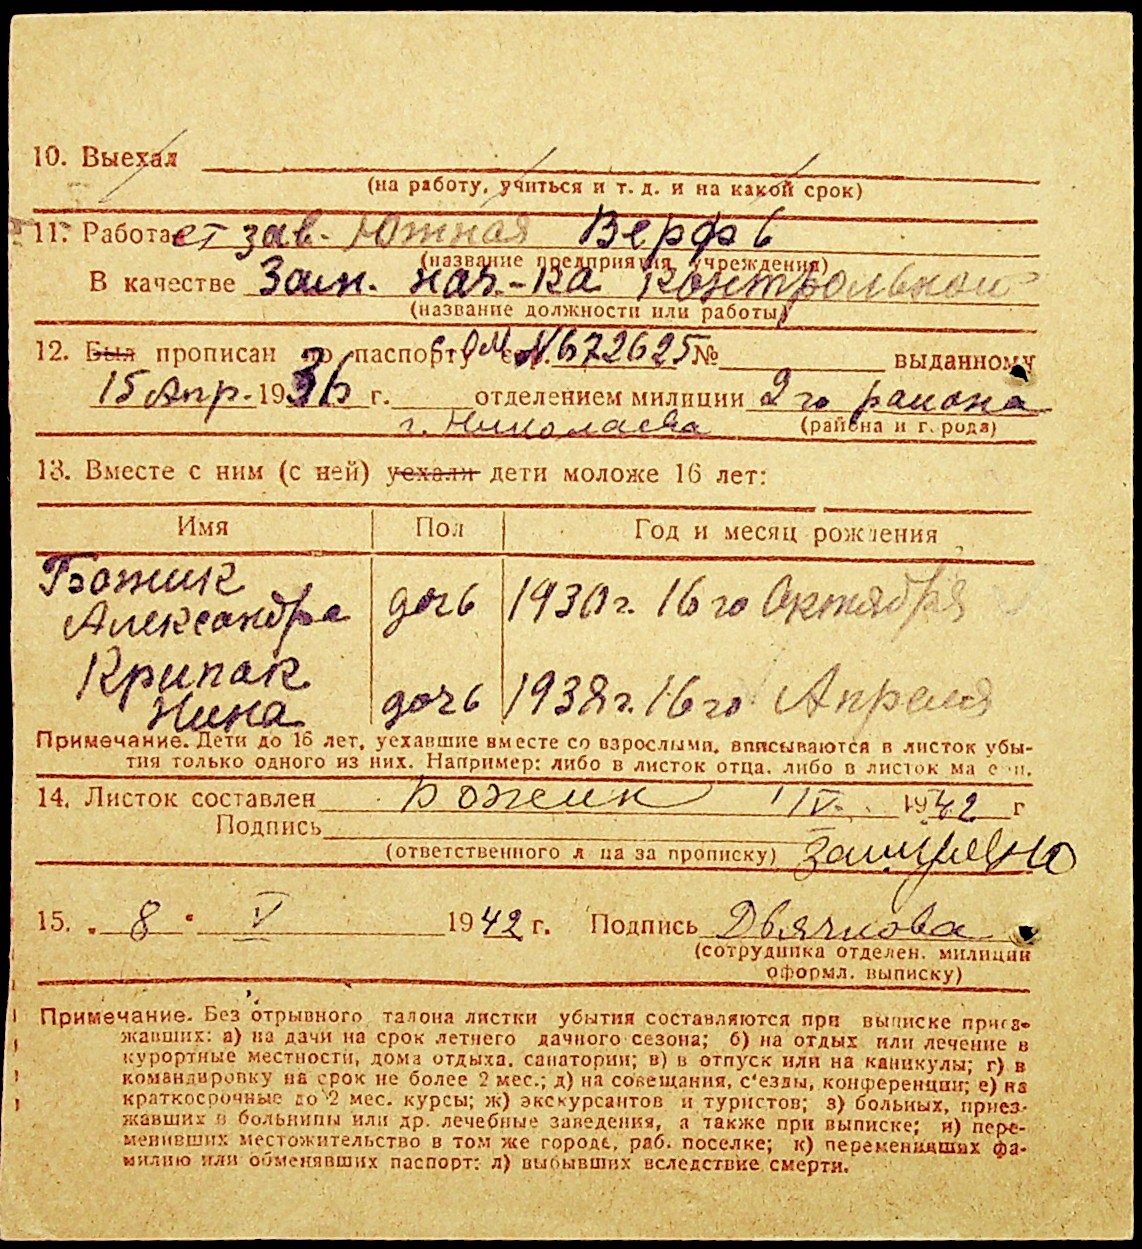 10. Выехал
(на работу, учиться и т. д. и на какой срок)
11. Работает зав. Южная Верфь
(название предприятия учреждения)
В качестве Зам. нач.-ка Контрольной
(название должности или работы)
12. Был прописан по паспорту N672625 № выданному
15 Апр. 1936 г. отделением милиции 2го района
г. Николаева (района и г. рода)
13. Вместе с ним (с ней) уехали дети моложе 16 лет:
Имя Пол Год и месяц рождения
Божик
Александра дочь 1930г. 16го Октября
Крипак
Нина дочь 1938г. 16го Апреля
Примечание. Дети до 16 лет, уехавшие вместе со взрослыми, вписываются в листок убы-
тия только одного из них. Например: либо в листок отца, либо в листок ма е и.
14. Листок составлен Божик IV. 1942 г
Подпись
(ответственного л ца за прописку)
15. 8 V 1942 г. Подпись Дьячкова
(сотрудника отделен. милиции
оформл. выписку)
Примечание. Без отрывного талона листки убытия составляются при выписке приез-
жавших: а) на дачи на срок летнего дачного сезона; б) на отдых или лечение в
курортные местности, дома отдыха, санатории; в) в отпуск или на каникулы; г) в
командировку на срок не более 2 мес.; д) на совещания, с'езды, конференции; е) на
краткосрочные до 2 мес. курсы; ж) экскурсантов и туристов; з) больных, приез-
жавших в больницы или др. лечебные заведения, а также при выписке; и) пере-
менивших местожительство в том же городе, раб. поселке; к) переменивших фа-
милию или обменявших паспорт; л) выбывших вследствие смерти.